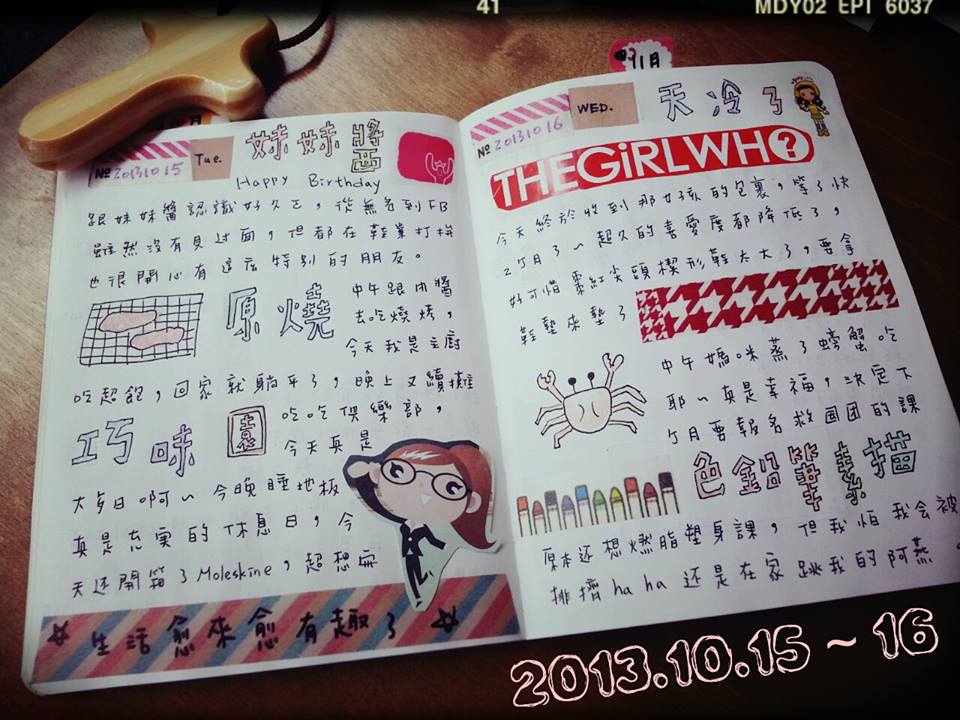 41
MDY02 EPT 6037
№ 20131015
Tue.
妹妹醬
Happy Birthday
跟妹妹醬認識好久ㄛ，從無名到FB
雖然沒有見过面，但都在鞋業打拼
也很開心有這麼特別的朋友。
原燒
中午跟肉醬
去吃燒烤，
今天我是主廚
吃超飽，回家就躺平了，晚上又續攤
巧味園
吃吃俱樂部，
今天真是
大多日啊～今晚睡地板
真是充実的休息日，今
天还開箱了Moleskine，超想
生活愈來愈有趣了
11月
№ 20131016
WED.
天冷了
THEGiRLWHO?
今天終於收到那女孩的包裹，等了快
2个月了～超久的喜愛度都降低了，
好可惜棗紅尖頭楔形鞋太大了，要拿
鞋墊來墊了
中午媽咪蒸了螃蟹吃
耶～真是幸福，決定下
个月要報名救国团的課
色鉛筆素描
原本还想燃脂塑身課，但我怕我会被
排擠haha 还是在家跳我的阿燕。
2013.10.15 ~ 16